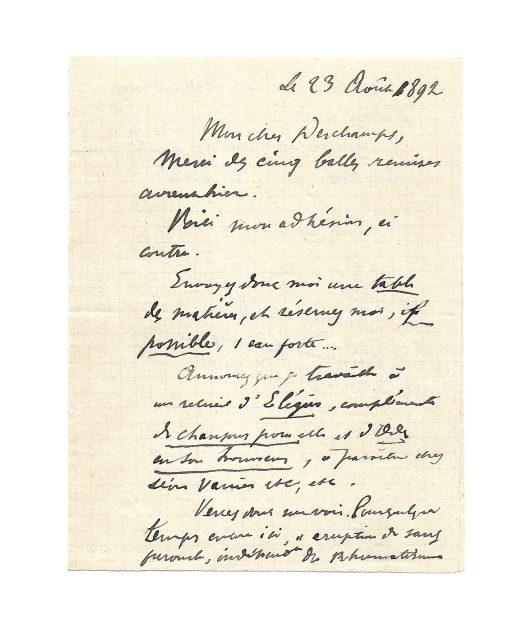 Le 23 Août 1892
Mon cher Deschamps,
Merci des cinq balles remises
avant hier.
Voici mon adhésion, ci
contre.
Envoyez donc moi une table
des matières, et réservez moi, if
possible, 1 eau forte....
Annoncez que je travaille à
un recueil d'Elégies, complément
de chansons pour elle et d'Odes
en son honneur, à paraître chez
Léon Vanier etc, etc.
Venez donc me voir. Pour quelque
temps encore ici, éruption de sang
furoncle, indépendt du Rhumatisme